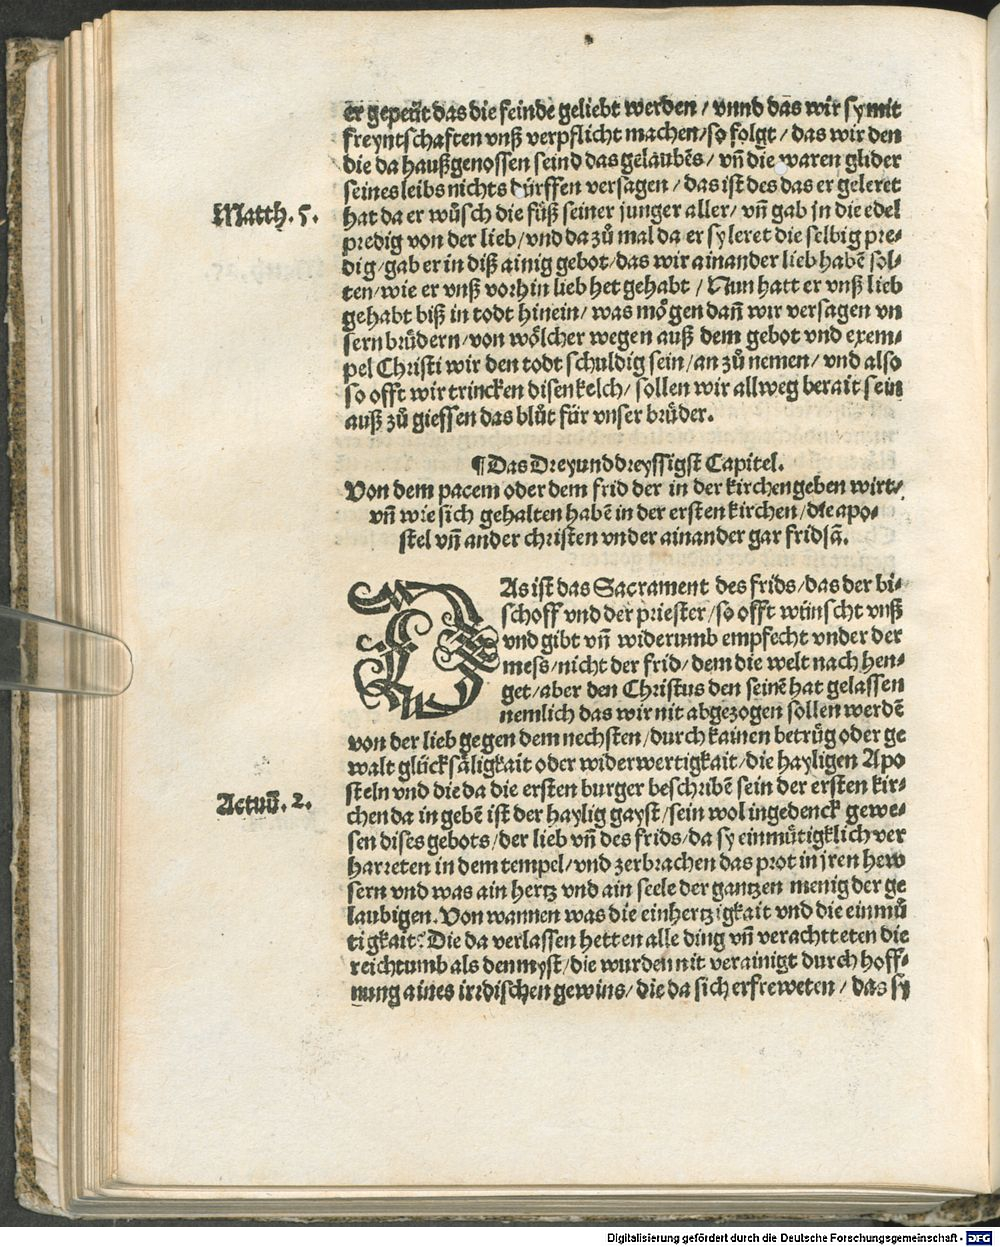 er gepeüt das die feinde geliebt werden / vnnd das wir sy mit
freyntschaften vnß verpflicht machen/so folgt / das wir den
die da haußgenossen seind das gelaubēs / vñ die waren glider
seines leibs nichts dürffen versagen / das ist des das er geleret
Matth. 5.
hat da er wůsch die fůß seiner junger aller/ vñ gab jn die edel
predig von der lieb/vnd da zů mal da er sy leret die selbig pre-
dig/gab er in diß ainig gebot/das wir ainander lieb habē sol-
ten/wie er vnß vorhin lieb het gehabt / Nun hatt er vnß lieb
gehabt biß in todt hinein/ was mögen dañ wir versagen vn
sern brüdern/von wölcher wegen auß dem gebot vnd exem-
pel Christi wir den todt schuldig sein/an zů nemen/ vnd also
so offt wir trincken disen kelch/ sollen wir allweg berait sein
auß zů giessen das blůt für vnser brüder.
¶Das Dreyunddreyssigst Capitel.
Von dem pacem oder dem frid der in der kirchen geben wirt/
vñ wie sich gehalten habē in der ersten kirchen/die apo-
stel vñ ander christen vnder ainander gar fridsā.
DAs ist das Sacrament des frids/das der bi-
schoff vnd der priester/so offt wünscht vnß
vnd gibt vñ widerumb empfecht vnder der
mess/nicht der frid/dem die welt nach hen-
get/aber den Christus den seinē hat gelassen
nemlich das wir nit abgezogen sollen werdē
von der lieb gegen dem nechsten/durch kainen betrüg oder ge
walt glücksäligkait oder widerwertigkait/die hayligen Apo
steln vnd die da die ersten burger beschribē sein der ersten kir-
Actuū. 2.
chen da in gebē ist der haylig gayst/sein wol ingedenck gewe-
sen dises gebots/der lieb vñ des frids/da sy einmütigklich ver
harreten in dem tempel/vnd zerbrachen das prot in jren hew
sern vnd was ain hertz vnd ain seele der gantzen menig der ge
laubigen. Von wannen was die einhertzigkait vnd die einmů
tigkait? Die da verlassen hetten alle ding vñ verachtteten die
reichtumb als den myst/die wurden nit verainigt durch hoff-
nung aines irrdischen gewins/die da sich erfreweten / das sy
Digitalisierung gefördert durch die Deutsche Forschungsgemeinschaft - DFG